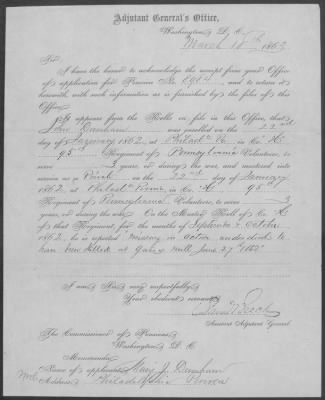 Adjutant General's Office,
Washington, D. C.
March 18th 1863
Sir:
I have the honor to acknowledge the receipt from your Office
of application for Pension No. and to return it
herewith, with such information as is furnished by the files of this
Office.
It appears from the Rolls on file in this Office, that
John Burnham was enrolled on the 22nd
day of January 1862, at Philada Pa in Co. H
95th Regiment of Pennsylvania Volunteers, to serve
years, or during the war, and mustered into
service as a Private on the 22nd day of January
1862, at Philada Penna, in Co. H 95
Regiment of Pennsylvania Volunteers, to serve 3
years, or during the war. On the Muster Roll of Co. H
of that Regiment, for the months of September & October
1862, he is reported missing in action and is said to
have been killed at Gaines Mill, June 27th 1862
I am, Sir, very respectfully,
Your obedient servant,
Assistant Adjutant General
The Commissioner of Pensions,
Washington, D. C.
Memoranda:
Name of applicant, Mary J. Burnham
Address, Philadelphia Penna